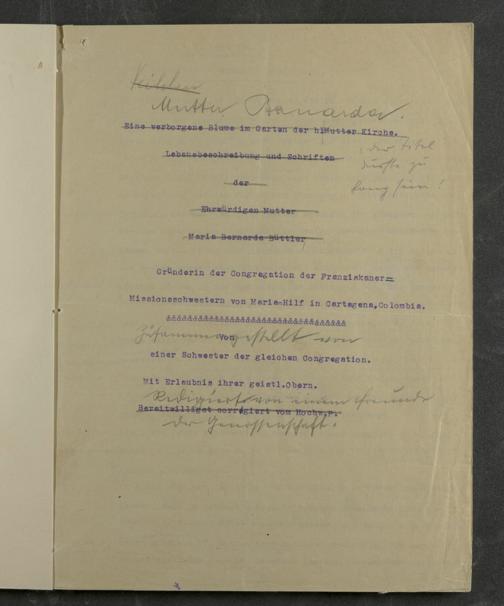 Mutter Bernarda.
Eine verborgene Blume im Garten der hlMutter Kirche.
der Titel
dürfte zu
lang sein!
Lebensbeschreibung und Schriften
der
Ehrwürdigen Mutter
Maria Bernarda Büttler
Gründerin der Congregation der Franziskaner=
Missionsschwestern von Maria-Hilf in Cartagena,Colombia.
Zusammengestellt von
Von
einer Schwester der gleichen Congregation.
Mit Erlaubnis ihrer geistl.Obern.
Redigiert von einem Freunde
Bereitwilligst corrigiert vom Hochw.P.
der Genossenschaft.